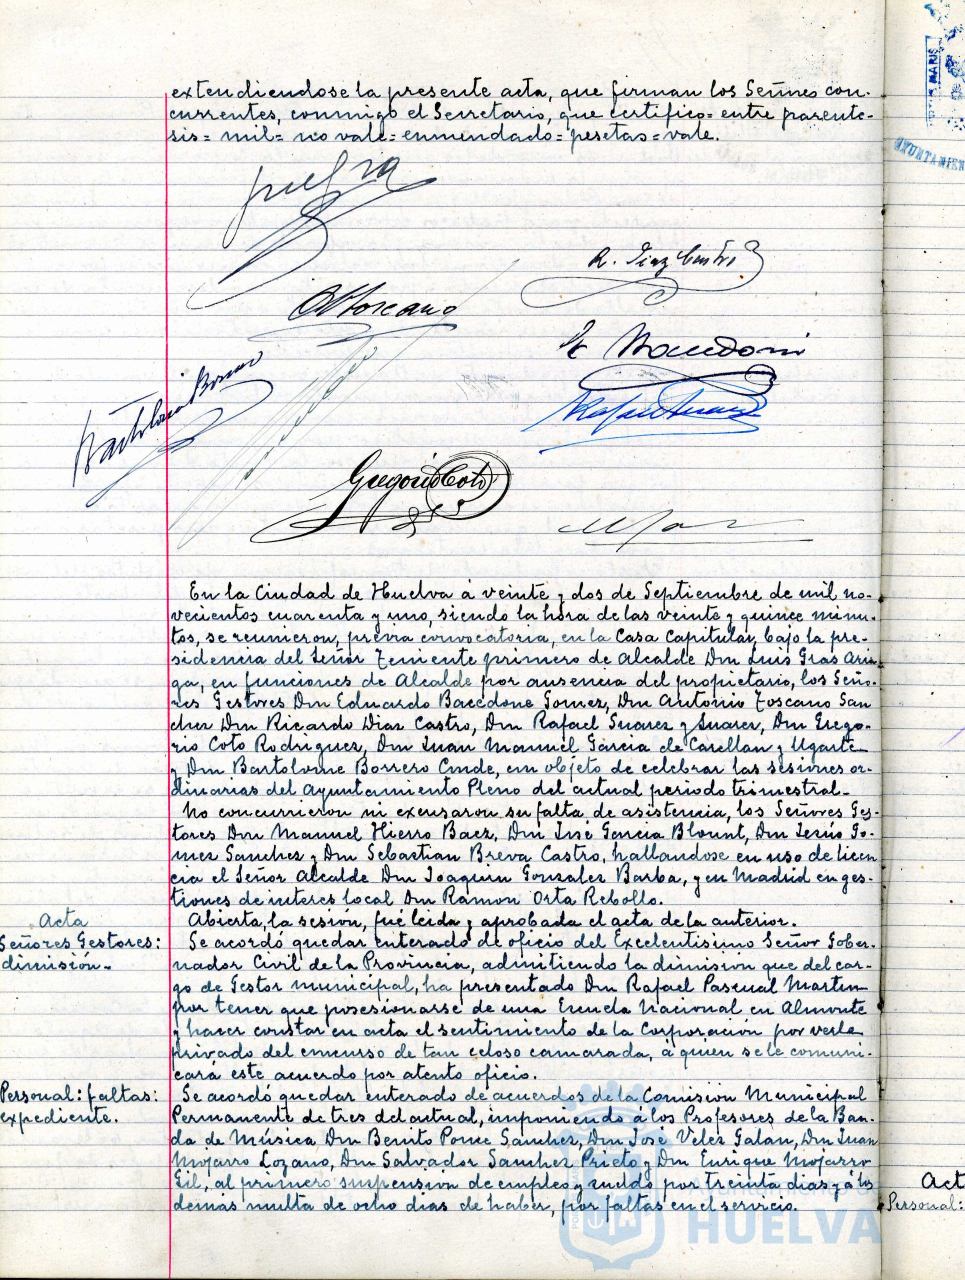 extendiendose la presente acta, que firman los Señores con-
currentes, conmigo el Secretario, que certifico= entre parente-
sis= mil= no vale= enmendado= pesetas= vale.
R. Diaz Castro
A Toscano
E Bacedoni
Bartolomé Borrero
Rafael Suarez
Gregorio Coto
En la Ciudad de Huelva á veinte y dos de Septiembre de mil no-
vecientos cuarenta y uno, siendo la hora de las veinte y quince minu-
tos, se reunieron, previa convocatoria, en la Casa Capitular, bajo la pre-
sidencia del Señor Teniente primero de Alcalde Don Luis Gras Arin-
ga, en funciones de Alcalde por ausencia del propietario, los Seño-
res Gestores Don Eduardo Bacedone Gomez, Don Antonio Toscano San
chez Don Ricardo Diaz Castro, Don Rafael Suarez y Suarez, Don Grego-
rio Coto Rodriguez, Don Juan Manuel Garcia de Carellan y Ugarte
y Don Bartolome Borrero Conde, con objeto de celebrar las sesiones or-
dinarias del Ayuntamiento Pleno del actual periodo trimestral.-
No concurrieron ni excusaron su falta de asistencia, los Señores Ges-
tores Don Manuel Hierro Baez, Don José Garcia Blount, Don Jesús Go-
mez Sanchez y Don Sebastian Breva Castro, hallandose en uso de licen
cia el Señor Alcalde Don Joaquin Gonzalez Barba, y en Madrid en ges-
tiones de interes local Don Ramon Orta Rebollo.
Acta
Abierta la sesión, fué leida y aprobada el acta de la anterior.
Señores Gestores:
dimisión.-
Se acordó quedar enterado de oficio del Excelentisimo Señor Gober-
nador Civil de la Provincia, admitiendo la dimisión que del car-
go de Gestor municipal, ha presentado Don Rafael Pascual Martin
por tener que posesionarse de una Escuela Nacional en Almonte
y hacer constar en acta el sentimiento de la Corporación por verse
privado del concurso de tan celoso camarada, á quien se le comuni-
cará este acuerdo por atento oficio.
Personal: faltas:
expediente.
Se acordó quedar enterado de acuerdos de la Comisión Municipal
Permanente de tres del actual, imponiendo á los Profesores de la Ban-
da de Música Don Benito Ponce Sanchez, Don José Velez Galan, Don Juan
Mojarro Lozano, Don Salvador Sanchez Prieto y Don Enrique Mojarro
Gil, al primero suspension de empleo y sueldo por treinta dias y á los
demás multa de ocho dias de haber, por faltas en el servicio.
Act
Personal:
AYUNTAMIEN
Ayuntamiento de
HUELVA